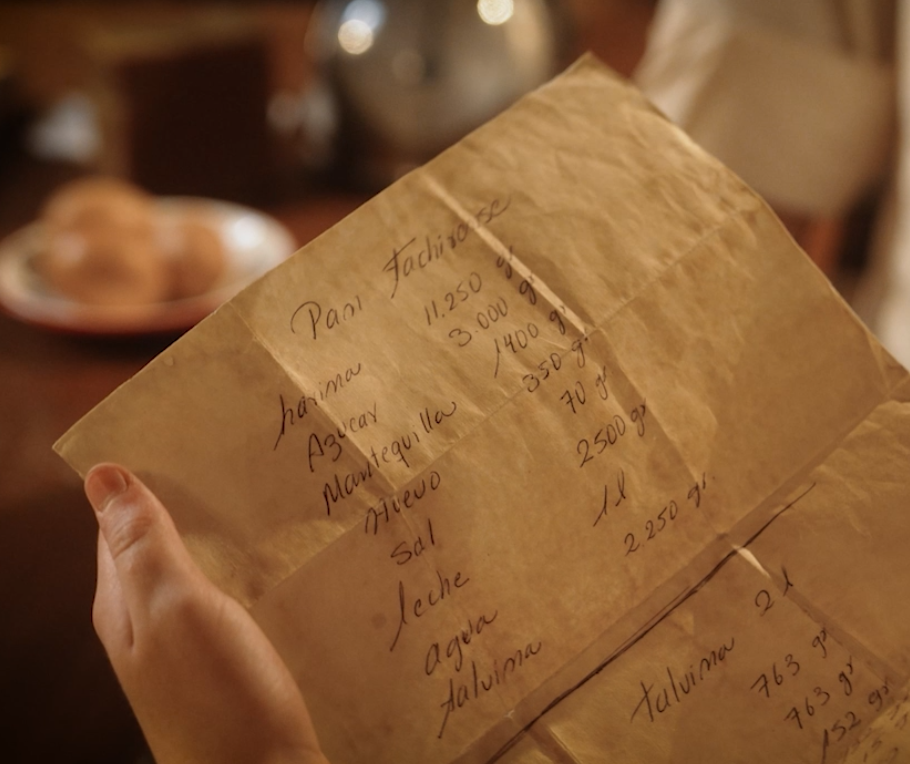 Pan Tachirense
harina 11.250 gr
Azucar 3.000 gr
Mantequilla 1400 gr
Huevo 350 gr.
Sal 70 gr
leche 2500 gr
agua 1 l
talvina 2.250 gr.
talvina 2 l
763 gr
763 gr
152 gr